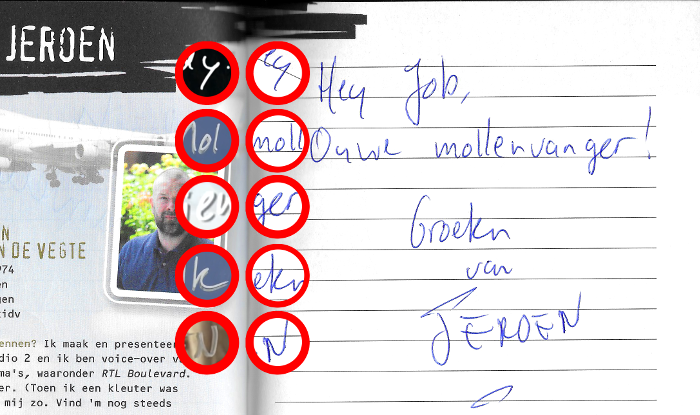 JEROEN
N
N DE VEGTE
974
en
gen
tidv
ennen? Ik maak en presentee
dio 2 en ik ben voice-over v
ma's, waaronder RTL Boulevard.
er. (Toen ik een kleuter was
mij zo. Vind 'm nog steeds
ey.
Mol
ier
k
EN
ey
moll
ger
ekn
N
Hey Job,
Ouwe mollenvanger!
Groekn
van
JEROEN